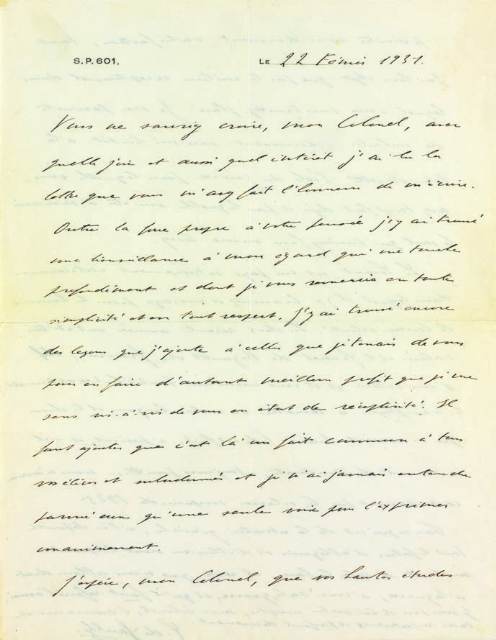 S.P. 601,
LE 22 Février 1931.
Vous ne sauriez croire, mon Colonel, avec
quelle joie et aussi quel intérêt j'ai lu la
lettre que vous m'avez fait l'honneur de m'écrire.
Outre la force propre à votre pensée j'y ai trouvé
une bienveillance à mon égard qui me touche
profondément et dont je vous remercie en toute
simplicité et en tout respect. J'y ai trouvé encore
des leçons que j'ajoute à celles que je tenais de vous
pour en faire d'autant meilleur profit que je me
sens vis-à-vis de vous en état de réceptivité. Il
faut ajouter que c'est là un fait commun à tous
et je n'ai jamais entendu
parmi eux qu'une seule voix pour l'exprimer
unanimement.
J'espère, mon Colonel, que vos hautes études